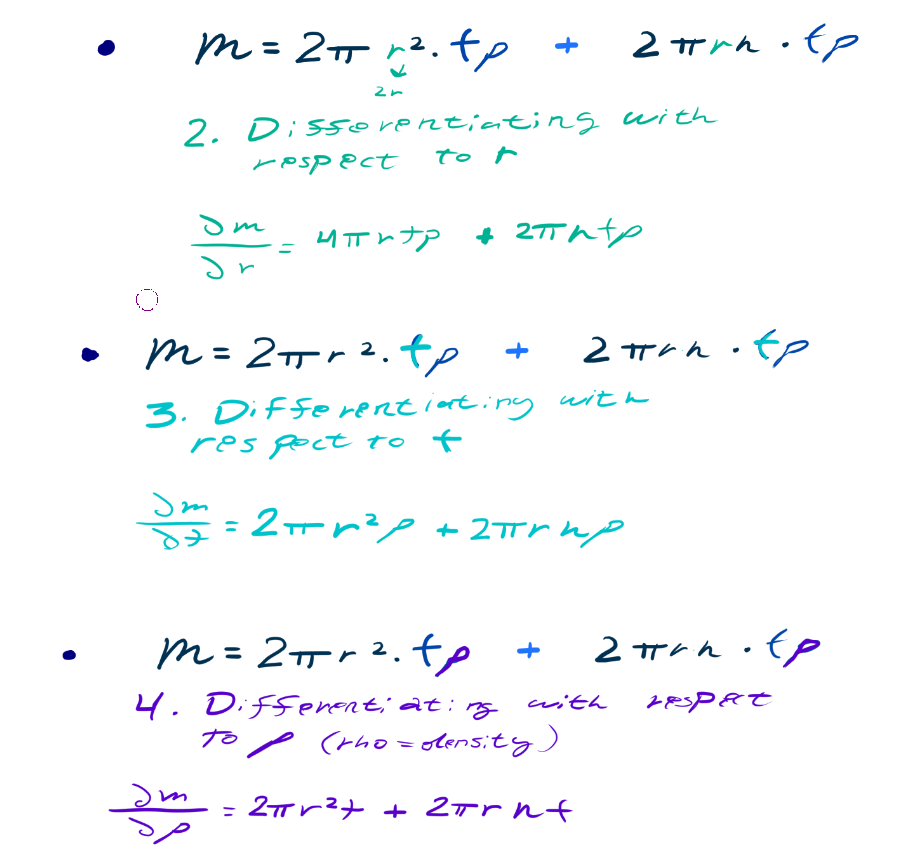 • m = 2π r². tρ + 2πrh · tρ
2r
2. Differentiating with
respect to r
∂m/∂r = 4πrtρ + 2πhtρ
• m = 2πr². tρ + 2πrh · tρ
3. Differentiating with
respect to t
∂m/∂t = 2πr²ρ + 2πrhρ
• m = 2πr². tρ + 2πrh · tρ
4. Differentiating with respect
to ρ (rho = density)
∂m/∂ρ = 2πr²t + 2πrht